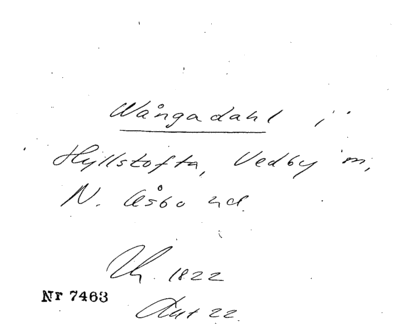 Wångadahl i
Hyllstofta, Vedby sn,
N. Åsbo hd.
Th. 1822
Nr 7463
Aut 22.